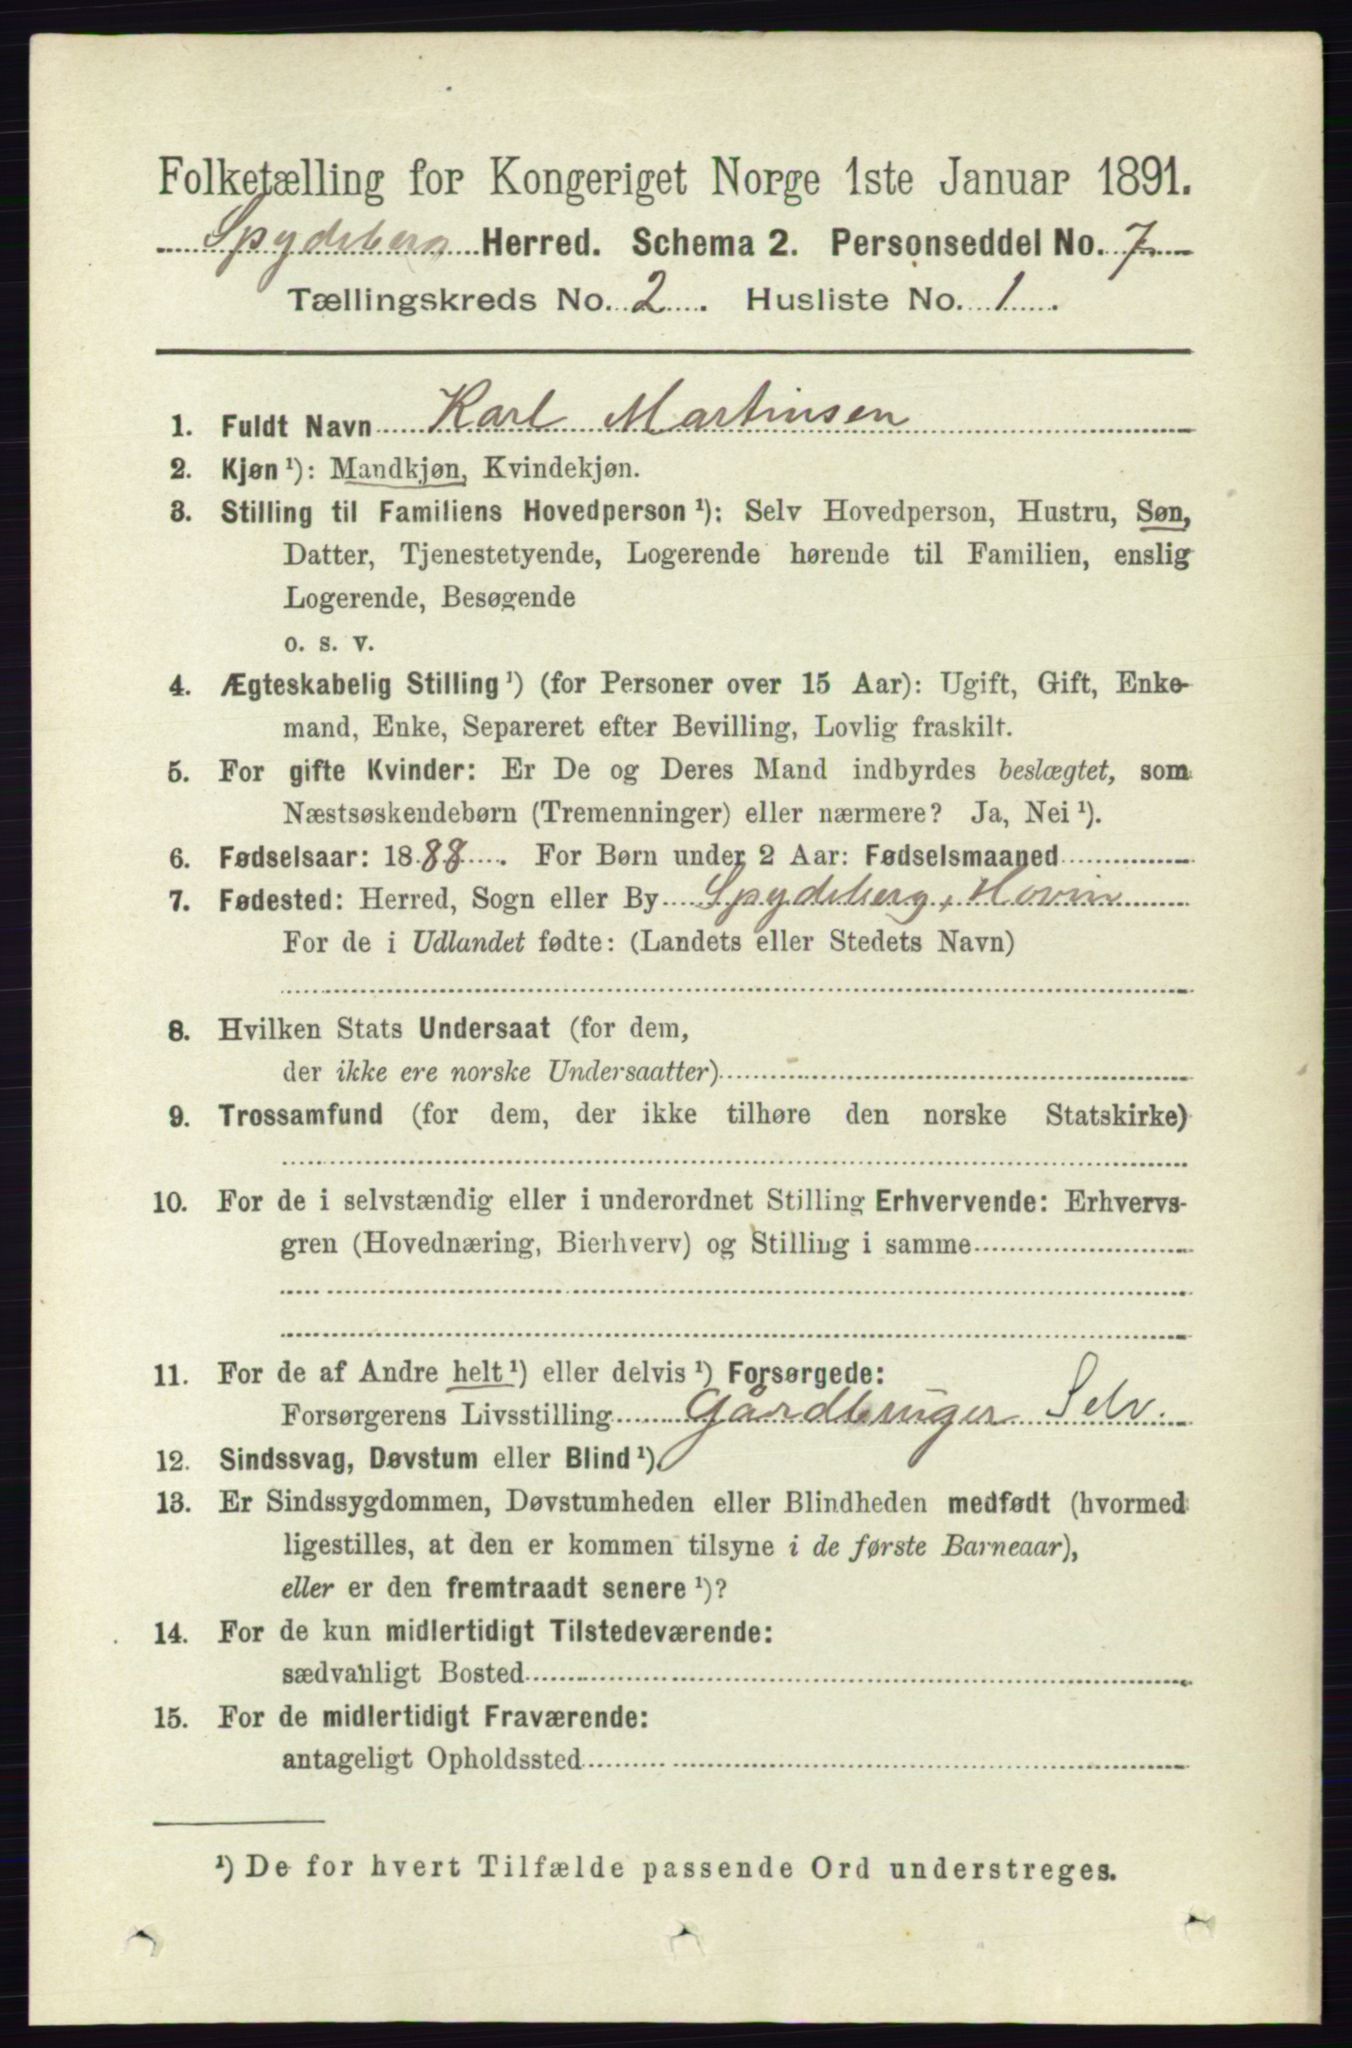 Folketælling for Kongeriget Norge 1ste Januar 1891.
Spydeberg Herred. Schema 2. Personseddel No. 7
Tællingskreds No. 2. Husliste No. 1.
1. Fuldt Navn Karl Martinsen
2. Kjøn ¹): Mandkjøn, Kvindekjøn.
3. Stilling til Familiens Hovedperson ¹): Selv Hovedperson, Hustru, Søn,
Datter, Tjenestetyende, Logerende hørende til Familien, enslig
Logerende, Besøgende
o. s. v.
4. Ægteskabelig Stilling ¹) (for Personer over 15 Aar): Ugift, Gift, Enke-
mand, Enke, Separeret efter Bevilling, Lovlig fraskilt.
5. For gifte Kvinder: Er De og Deres Mand indbyrdes beslægtet, som
Næstsøskendebørn (Tremenninger) eller nærmere? Ja, Nei ¹).
6. Fødselsaar: 1888. For Børn under 2 Aar: Fødselsmaaned
7. Fødested: Herred, Sogn eller By Spydeberg, Hovin
For de i Udlandet fødte: (Landets eller Stedets Navn)
8. Hvilken Stats Undersaat (for dem,
der ikke ere norske Undersaatter)
9. Trossamfund (for dem, der ikke tilhøre den norske Statskirke)
10. For de i selvstændig eller i underordnet Stilling Erhvervende: Erhvervs-
gren (Hovednæring, Bierhverv) og Stilling i samme
11. For de af Andre helt ¹) eller delvis ¹) Forsørgede:
Forsørgerens Livsstilling Gårdbruger Selv.
12. Sindssvag, Døvstum eller Blind ¹)
13. Er Sindssygdommen, Døvstumheden eller Blindheden medfødt (hvormed
ligestilles, at den er kommen tilsyne i de første Barneaar),
eller er den fremtraadt senere ¹)?
14. For de kun midlertidigt Tilstedeværende:
sædvanligt Bosted
15. For de midlertidigt Fraværende:
antageligt Opholdssted
¹) De for hvert Tilfælde passende Ord understreges.